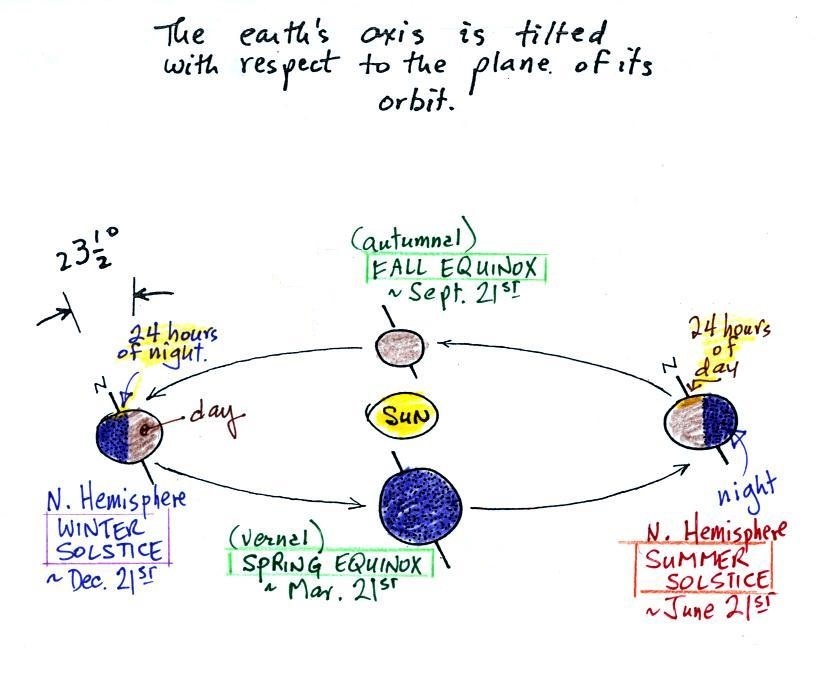 The earth's axis is tilted
with respect to the plane of its
orbit.
23 1/2°
(autumnal)
FALL EQUINOX
~ Sept. 21st
24 hours
of night.
N
day
24 hours
of
day
N
SUN
night
N. Hemisphere
WINTER
SOLSTICE
~ Dec. 21st
(vernal)
SPRING EQUINOX
~ Mar. 21st
N. Hemisphere
SUMMER
SOLSTICE
~ June 21st